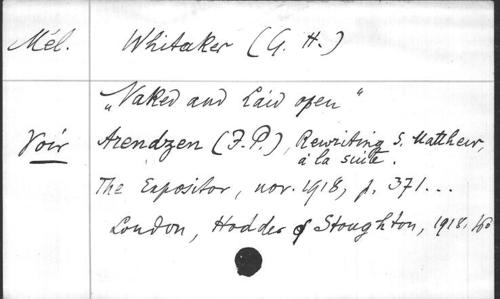 Mél. Whitaker (G. H.)
„Naked and laid open"
Voir Arendzen (J.P.), Rewriting S. Matthew,
à la suite.
The Expositor, nov. 1918, p. 371...
London, Hodder & Stoughton, 1918,